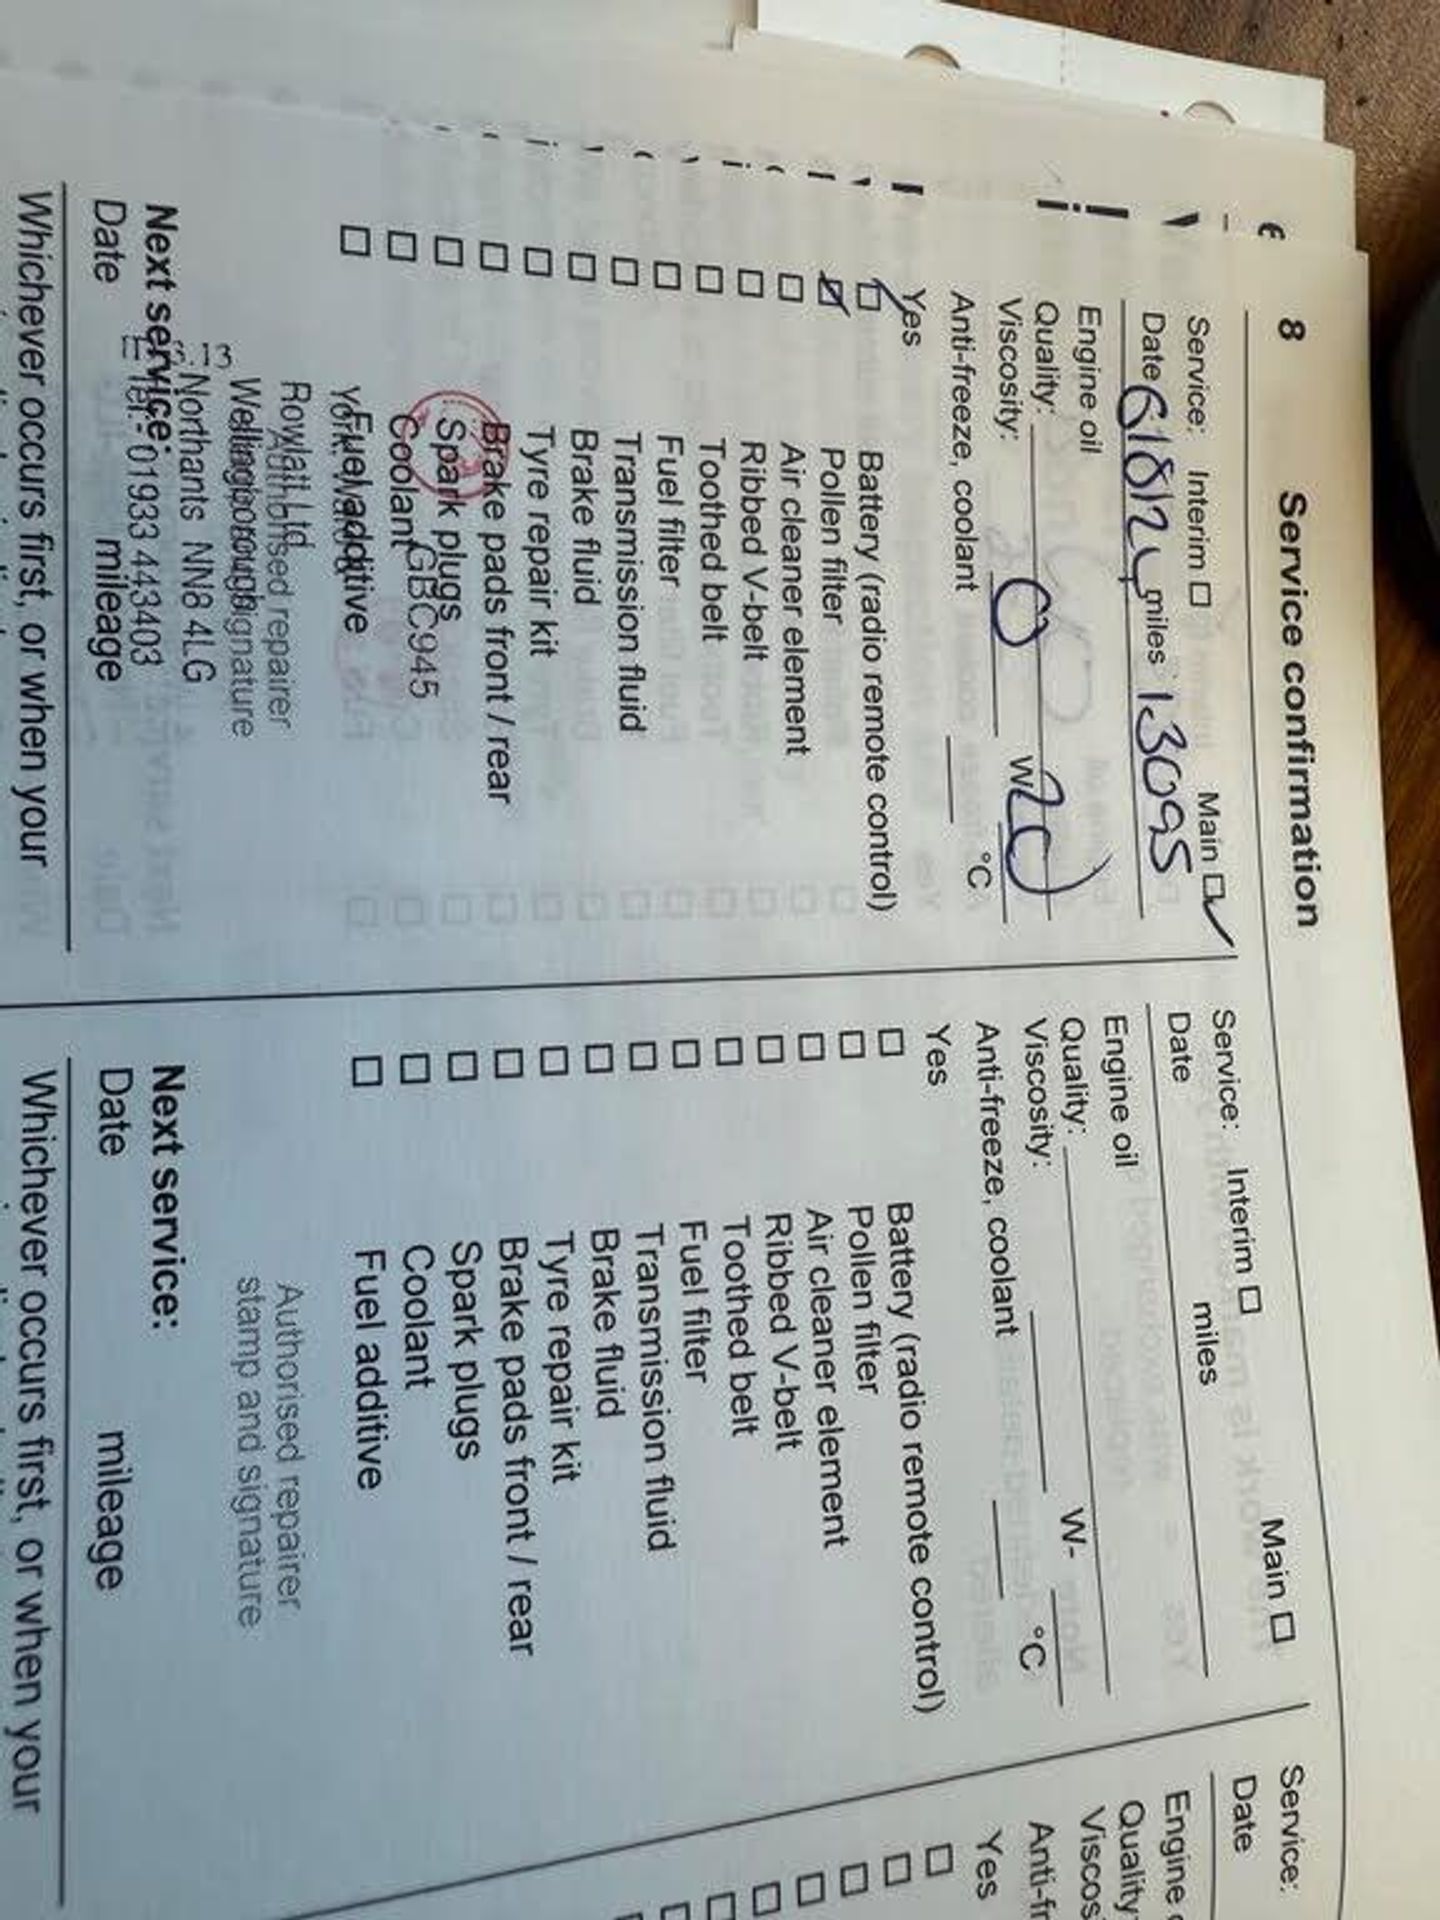 8 Service confirmation
Service: Interim Main
Date 6/8/24 miles 13095
Engine oil
Quality:
Viscosity: 0 W 20
Anti-freeze, coolant °C
Yes
Battery (radio remote control)
Pollen filter
Air cleaner element
Ribbed V-belt
Toothed belt
Fuel filter
Transmission fluid
Brake fluid
Tyre repair kit
Brake pads front / rear
Spark plugs
Coolant GBC945
Fuel additive
Rowlatt Ltd
Authorised repairer
Wellingborough
signature
Northants NN8 4LG
Next service:
Tel:- 01933 443403
Date mileage
Whichever occurs first, or when your
Service: Interim Main
Date miles
Engine oil
Quality:
Viscosity: W-
Anti-freeze, coolant °C
Yes
Battery (radio remote control)
Pollen filter
Air cleaner element
Ribbed V-belt
Toothed belt
Fuel filter
Transmission fluid
Brake fluid
Tyre repair kit
Brake pads front / rear
Spark plugs
Coolant
Fuel additive
Authorised repairer
stamp and signature
Next service:
Date mileage
Whichever occurs first, or when your
Service:
Date
Engine
Quality
Viscos
Anti-fr
Yes